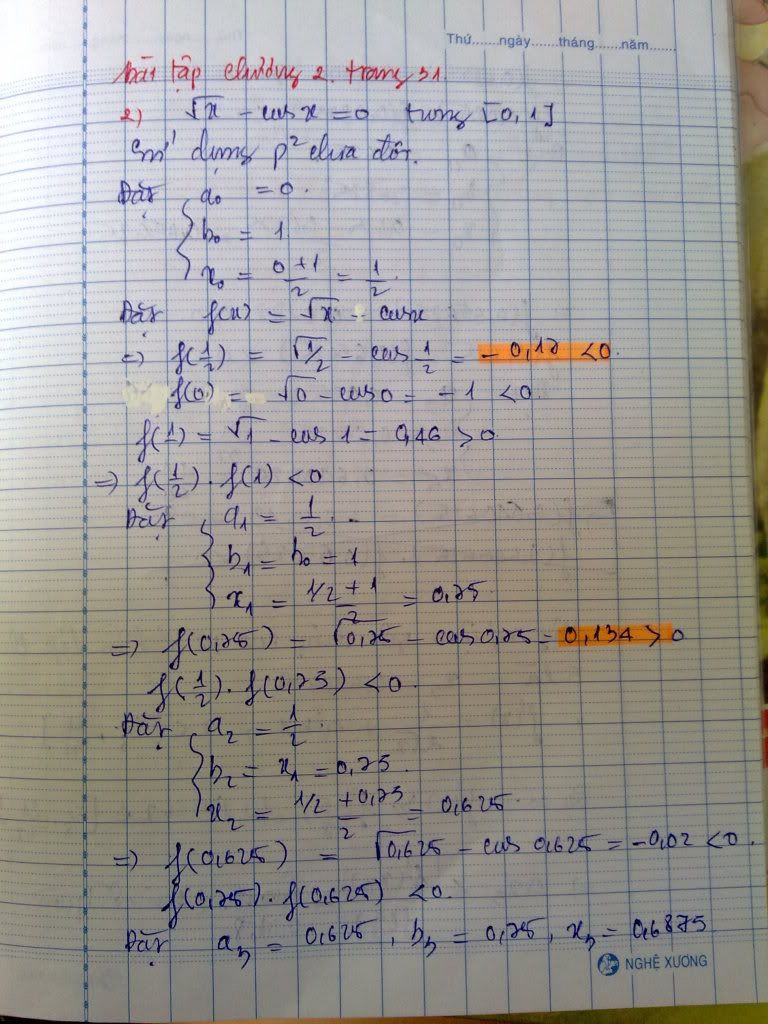 Thứ.......ngày.......tháng.......năm.......
Bài tập chương 2. trang 31.
2) √x - cos x = 0 trong [0, 1]
Sử dụng p² chia đôi.
Đặt { a₀ = 0.
b₀ = 1
x₀ = (0+1)/2 = 1/2.
Đặt f(x) = √x - cosx
=> f(1/2) = √1/2 - cos 1/2 = - 0,17 < 0.
f(0) = √0 - cos0 = - 1 < 0.
f(1) = √1 - cos 1 = 0,46 > 0
=> f(1/2) . f(1) < 0
Đặt { a₁ = 1/2.
b₁ = b₀ = 1
x₁ = (1/2 + 1)/2 = 0,75.
=> f(0,75) = √0,75 - cos 0,75 = 0,134 > 0
f(1/2) . f(0,75) < 0.
Đặt { a₂ = 1/2.
b₂ = x₁ = 0,75.
x₂ = (1/2 + 0,75)/2 = 0,625.
=> f(0,625) = √0,625 - cos 0,625 = -0,02 < 0.
f(0,75) . f(0,625) < 0.
Đặt a₃ = 0,625, b₃ = 0,75, x₃ = 0,6875
NGHỆ XƯƠNG